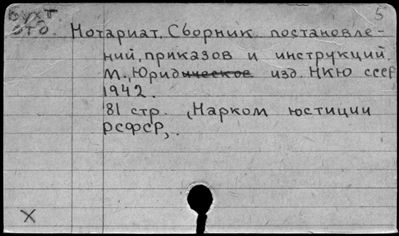 БУХТ 5
ОТО.
Нотариат. Сборник постановле-
ний, приказов и инструкций.
М., Юридическое изд. НКЮ СССР
1942.
81 стр. (Нарком юстиции
РСФСР).
X